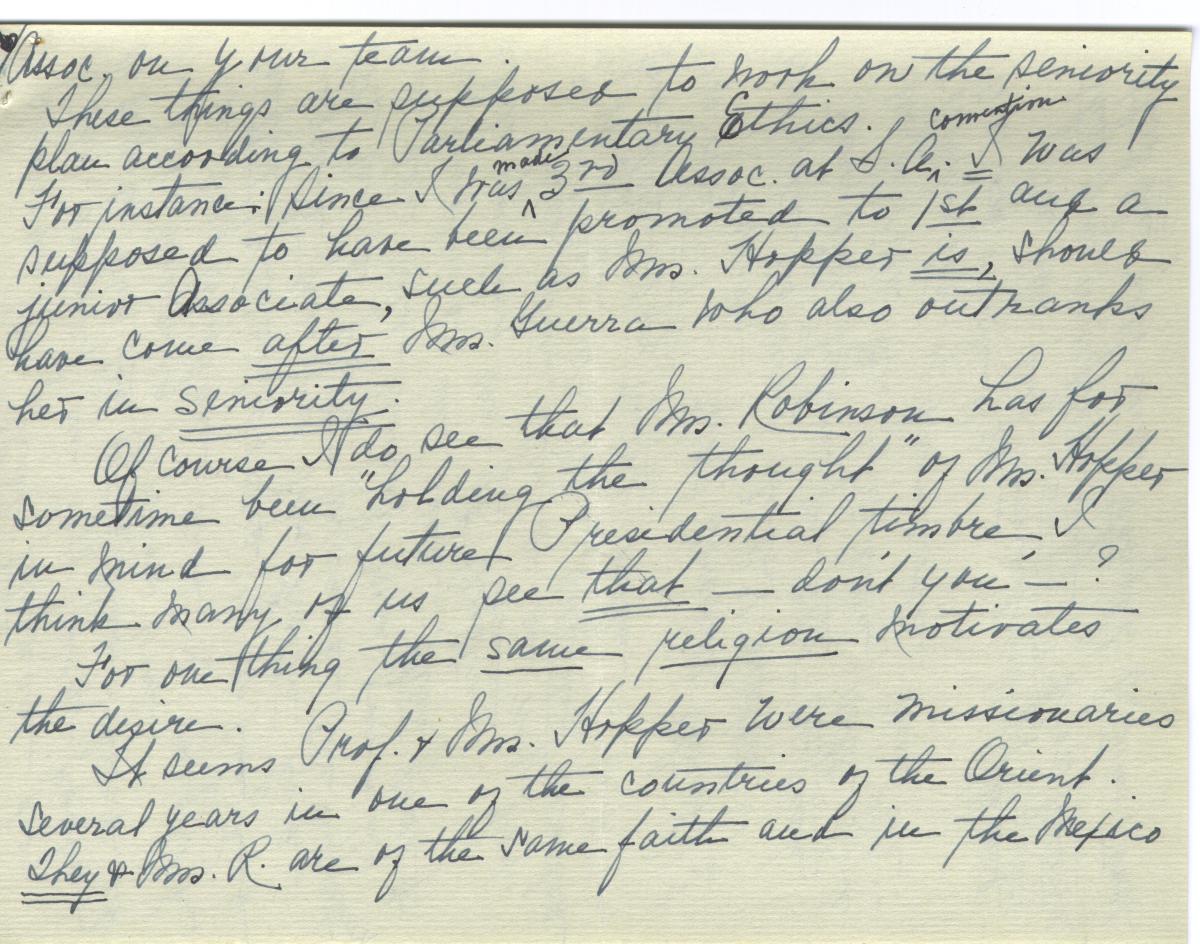 Assoc. on your team.
These things are supposed to work on the seniority
plan according to Parliamentary Ethics.
For instance: Since I was ^made 3rd Assoc. at S.A.^convention I was
supposed to have been promoted to 1st and a
junior Associate, such as Mrs. Hopper is, should
have come after Mrs. Guerra who also outranks
her in seniority.
Of course I do see that Mrs. Robinson has for
sometime been "holding the thought" of Mrs. Hopper
in mind for future Presidential timbre. I
think many of us see that — don't you — ?
For one thing the same religion motivates
the desire.
It seems Prof. & Mrs. Hopper were missionaries
several years in one of the countries of the Orient.
They & Mrs. R. are of the same faith and in the Mexico